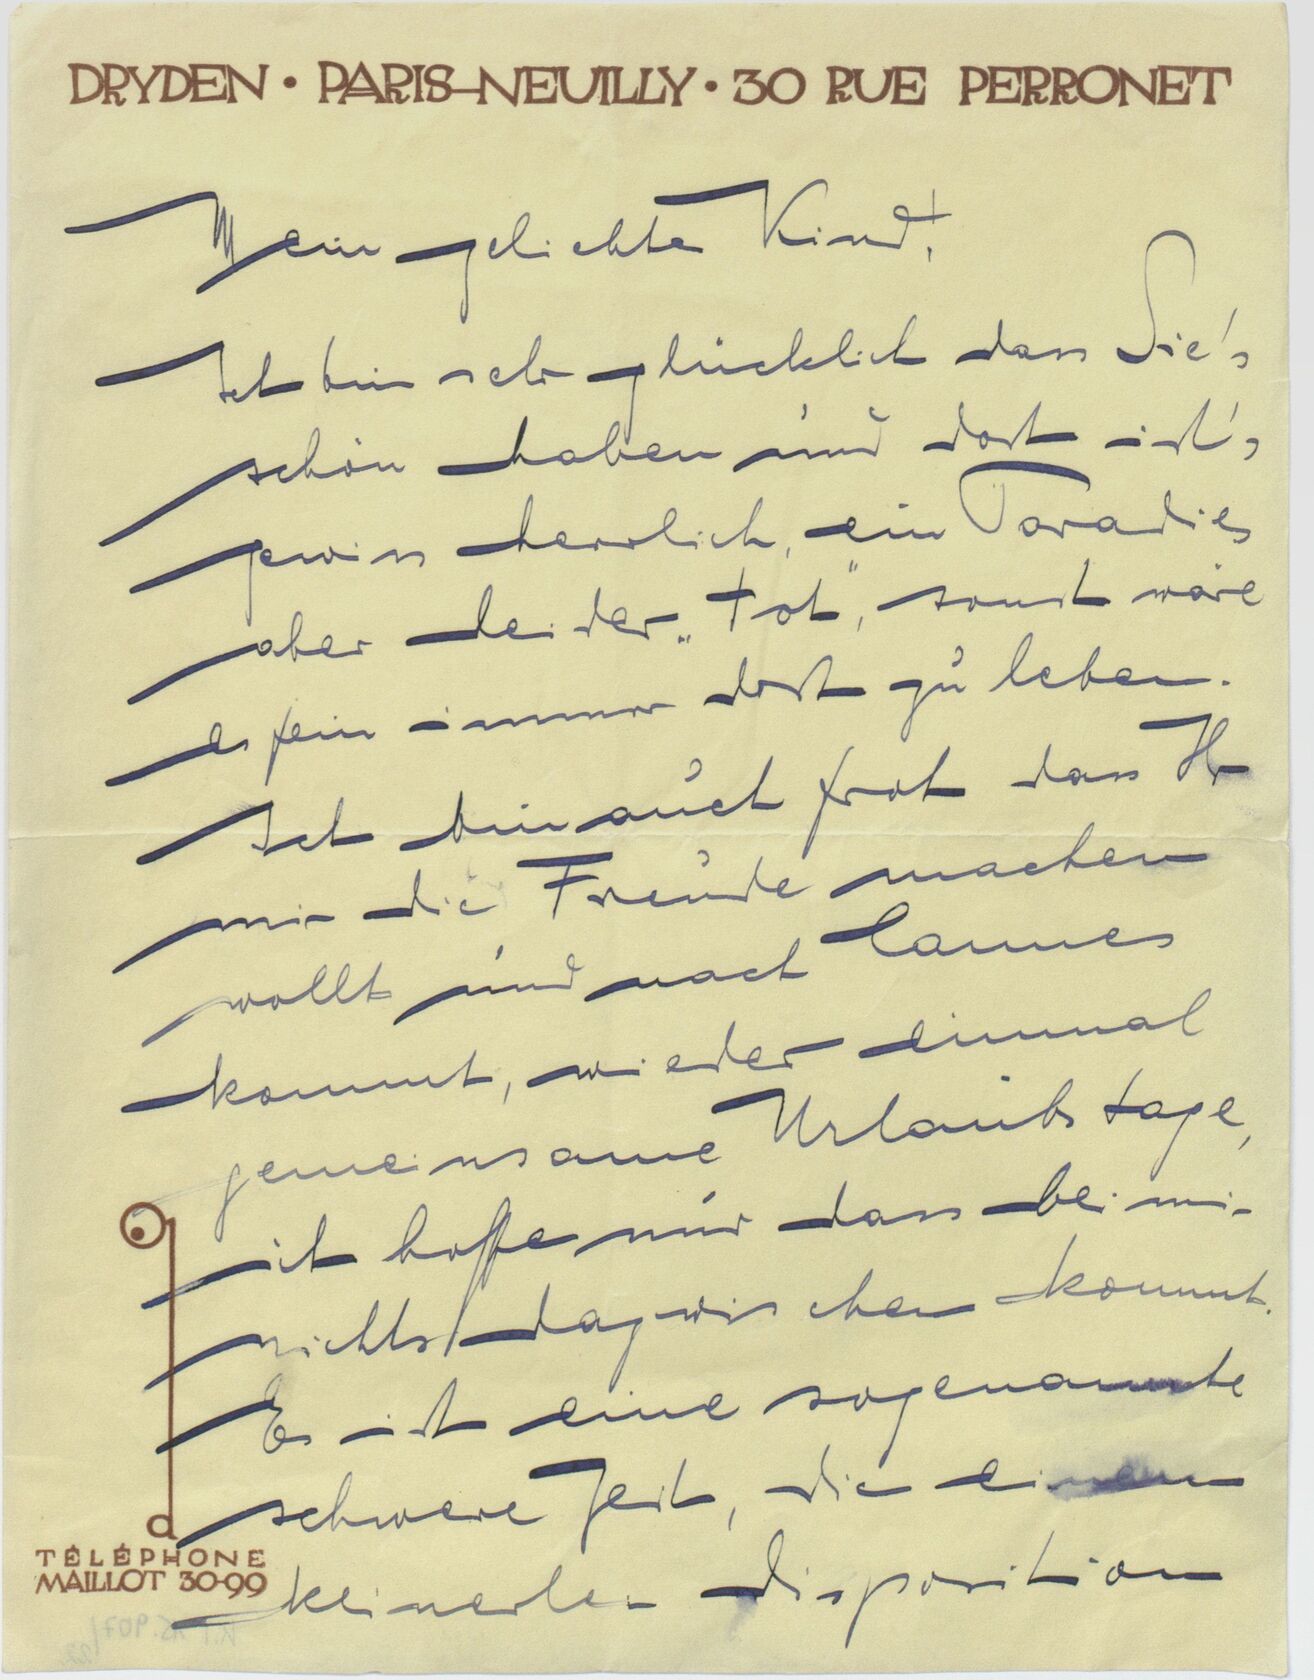 DRYDEN • PARIS-NEUILLY • 30 RUE PERRONET
Mein geliebtes Kind!
Ich bin sehr glücklich dass Sie's
schön haben und dort ist's
gewiss herrlich, ein Paradies
aber leider „tot“, sonst wäre
es fein immer dort zu leben.
Ich bin auch froh dass Ihr
mir die Freude machen
wollt und nach Cannes
kommt, wieder einmal
gemeinsame Urlaubstage,
ich hoffe nur dass bei mir
nichts dazwischen kommt.
Es ist eine sogenannte
schwere Zeit, die einem
keinerlei disposition
d
TÉLÉPHONE
MAILLOT 30-99